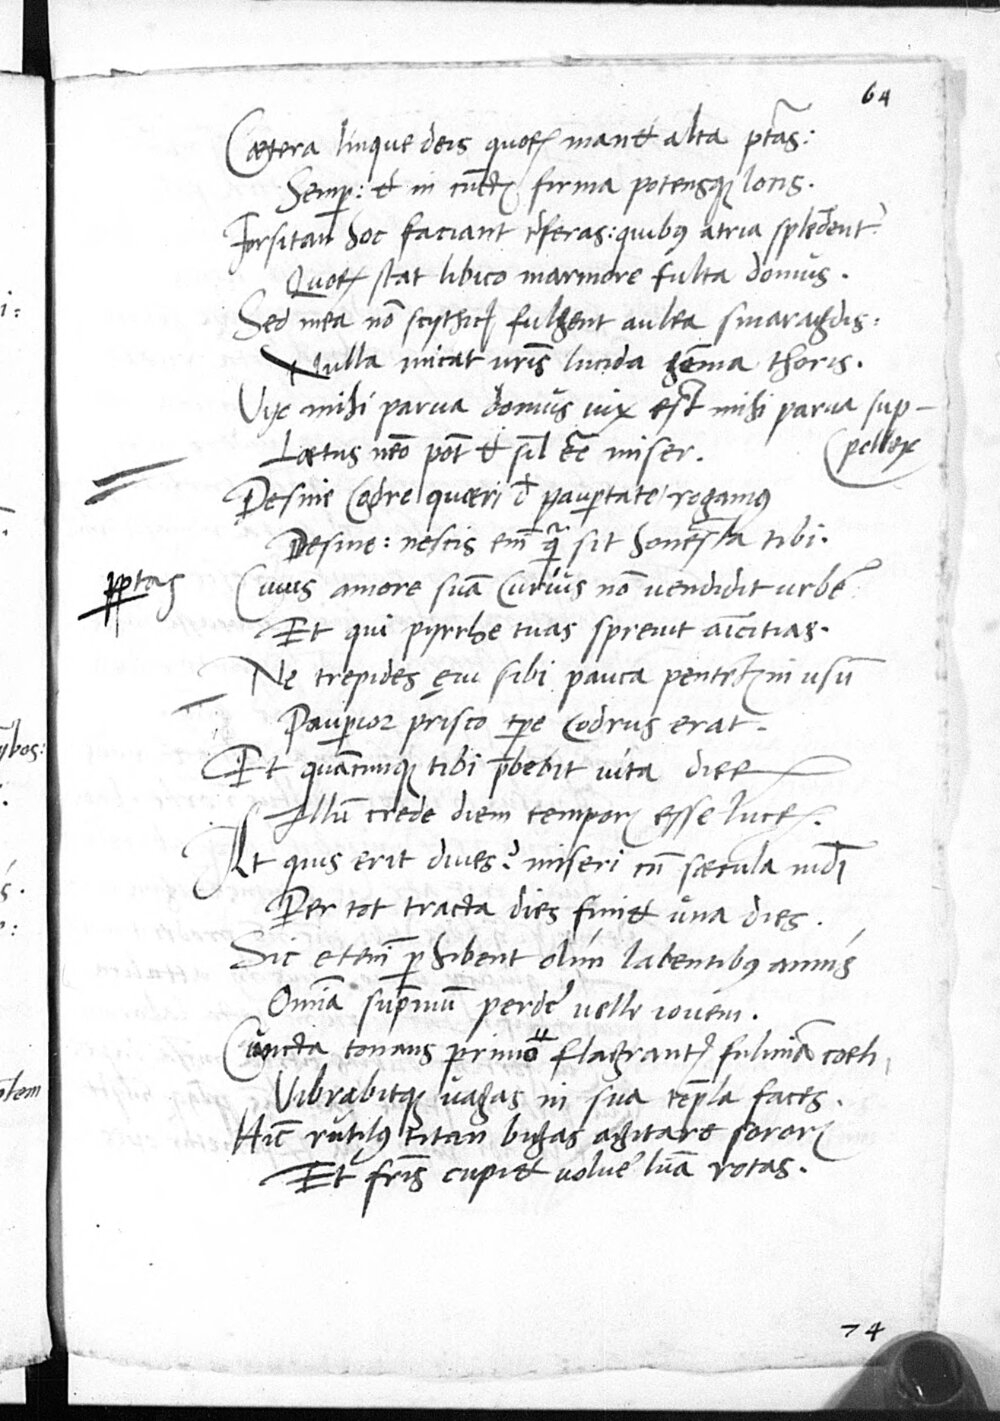 64
Cætera linque deis quoꝝ manet alta ptãs:
Semp̱: et in cunctis firma potensqꝫ locis.
Forsitan hoc faciant proferas: quibꝰ atria splẽdent?
Quoꝝ stat libico marmore fulta domus.
Sed mea nõ scythicis fulgent aulea smaragdis:
Nulla micat nris̃ lucida gẽma thoris.
Vix mihi parua domus uix est mihi parua sup-
pellex
Lætus nẽo põt et sil̃ eẽ miser.
Desine Codre quæri d̃ paup̱tate rogamus
Desine: nescis em̃ q̃ sit honesta tibi.
pp̱tas
Cuius amore suã Curius nõ uendidit urbẽ.
Et qui pyrrhe tuas spreuit aĩcitias.
Ne trepides æui sibi pauca petentis in usũ
Paup̱ior prisco tp̃e Codrus erat.
Et quãcunqꝫ tibi p̃bebit uita dieꝝ
Illũ crede diem temporis esse tui.
At quis erit diues? miseri cũ sæcula mũdi
Per tot tracta dies finiet una dies.
Sic etenĩ p̱hibent olim labentibꝰ annis
Omnĩa sup̃mum perdere uelle iouem.
Cuncta tonans primo flagrantis fulmina coeli
Vibrabitqꝫ uagas in sua tẽpla faces.
Hinc rutilꝰ titan bigas agitare sororis
Et fris̃ cupiet uoluere luna rotas.
74